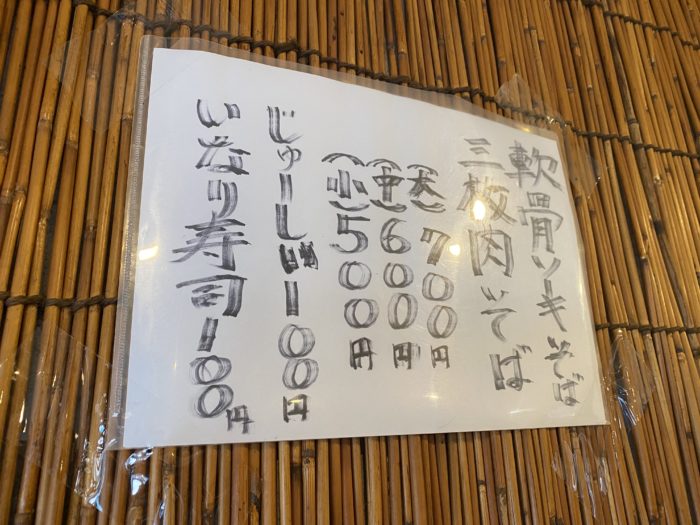 軟骨ソーキそば
三枚肉そば
(大)700円
(中)600円
(小)500円
じゅーしぃ100円
いなり寿司100円